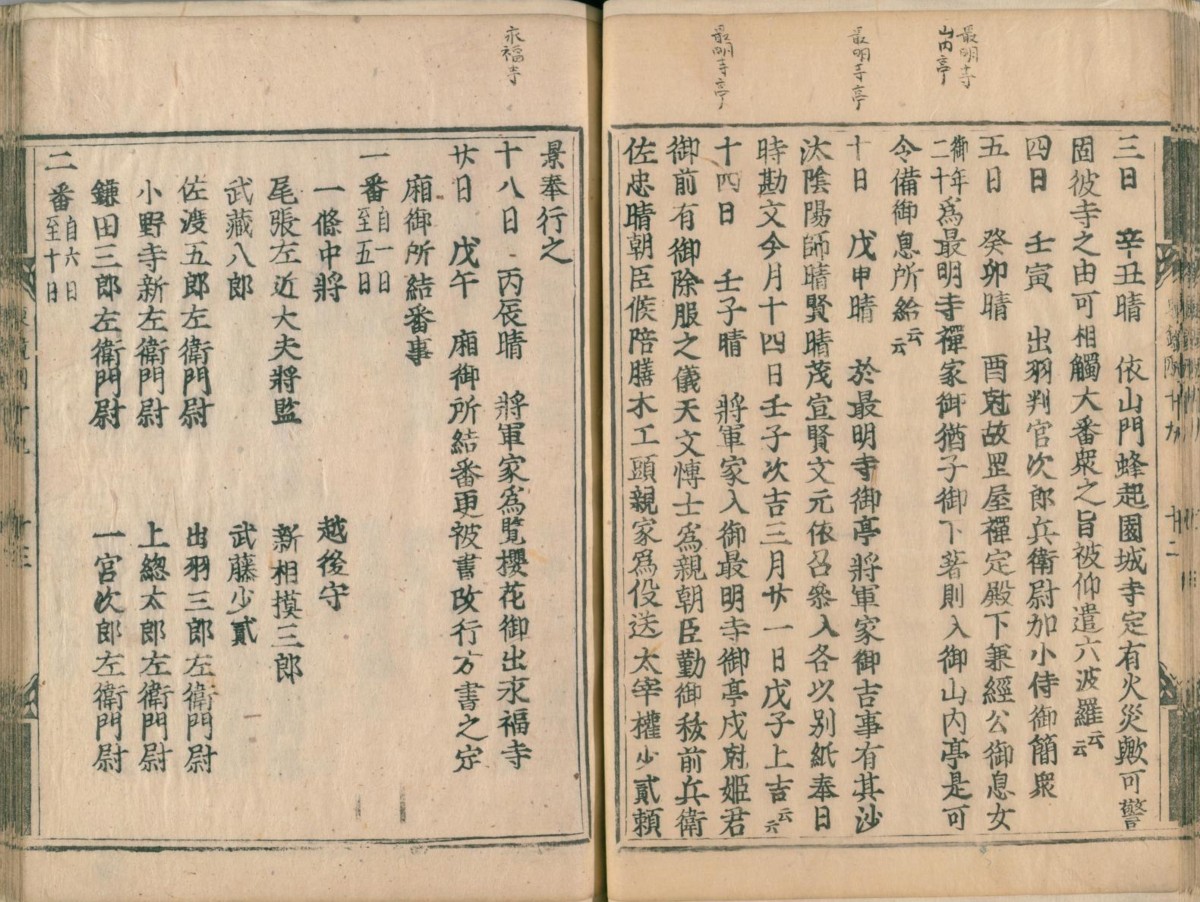 最明寺
山内亭
最明寺亭
最明寺亭
三日　辛丑晴　依山門蜂起園城寺定有火災歟可警
固彼寺之由可相觸大番衆之旨被仰遣六波羅云云
四日　壬寅　出羽判官次郎兵衛尉加小侍御簡衆
五日　癸卯晴　酉尅故罡屋禪定殿下兼經公御息女
御年二十爲最明寺禪家御猶子御下著則入御山内亭是可
令備御息所給云云
十日　戊申晴　於最明寺御亭將軍家御吉事有其沙
汰陰陽師晴賢晴茂宣賢文元依召參入各以別紙奉日
時勘文今月十四日壬子次吉三月廿一日戊子上吉云云
十四日　壬子晴　將軍家入御最明寺御亭戌尅姬君
御前有御除服之儀天文慱士爲親朝臣勤御秡前兵衛
佐忠晴朝臣候陪膳木工頭親家爲役送太宰權少貳頼
永福寺
景奉行之
十八日　丙辰晴　將軍家爲覧櫻花御出永福寺
廿日　戊午　廂御所結番更被書改行方書之定
廂御所結番事
一番自一日至五日
一條中將　越後守
尾張左近大夫將監　新相摸三郎
武藏八郎　武藤少貳
佐渡五郎左衛門尉　出羽三郎左衛門尉
小野寺新左衛門尉　上總太郎左衛門尉
鎌田三郎左衛門尉　一宮次郎左衛門尉
二番自六日至十日